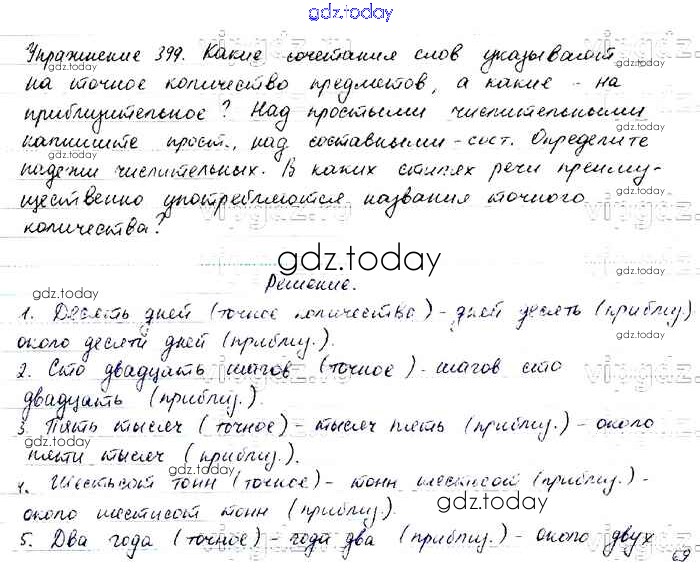 gdz.today
Упражнение 399. Какие сочетания слов указывают
на точное количество предметов, а какие - на
приблизительное? Над простыми числительными
напишите прост., над составными - сост. Определите
падежи числительных. В каких стилях речи преиму-
щественно употребляются названия точного
количества?
gdz.today
Решение.
1. Десять дней (точное количество) - дней десять (приблиз.)
около десяти дней (приблиз.).
2. Сто двадцать шагов (точное) - шагов сто
двадцать (приблиз.).
3. Пять тысяч (точное) - тысяч пять (приблиз.) - около
пяти тысяч (приблиз.).
4. Шестьсот тонн (точное) - тонн шестьсот (приблиз.) -
около шестисот тонн (приблиз.).
5. Два года (точное) - года два (приблиз.) - около двух
69